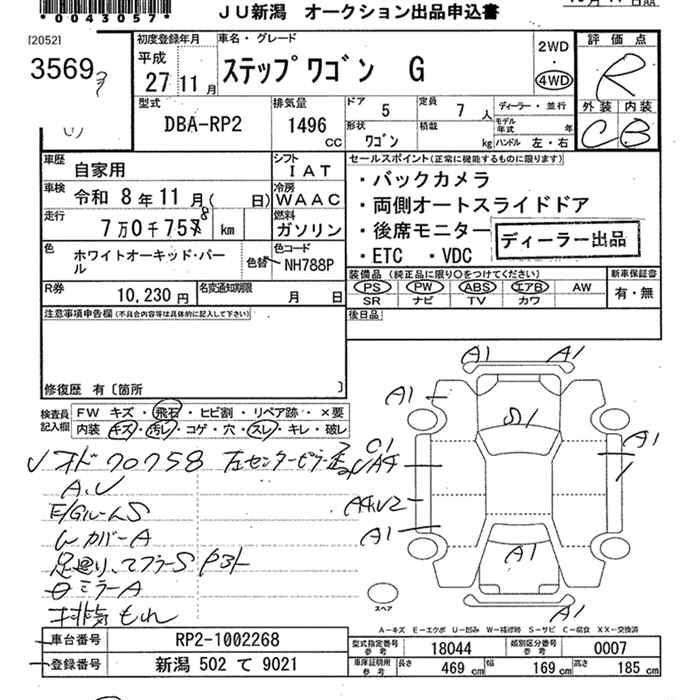 *0043057*
JU新潟 オークション出品申込書
[2052]
3569
初度登録年月
平成
27年11月
車名・グレード
ステップワゴン G
2WD
・
4WD
評価点
R
型式
DBA-RP2
排気量
1496
CC
ドア
5
定員
7人
形状
ワゴン
積載
kg
ディーラー・並行
モデル年式 年
ハンドル 左・右
外装 内装
C B
車歴
自家用
シフト
IAT
車検
令和 8年11月( 日)
冷房
WAAC
走行
7万0千758 km
燃料
ガソリン
色
ホワイトオーキッド・パール
色替
色コード
NH788P
R券
10,230円
名変通知期限
月 日
セールスポイント(正常に機能するものに限ります)
・バックカメラ
・両側オートスライドドア
・後席モニター
・ETC ・VDC
ディーラー出品
装備品 (純正品に限り○をつけてください)
PS PW ABS エアB AW
SR ナビ TV カワ
新車保証書
有・無
後日品
注意事項申告欄(不具合内容等は具体的に記入して下さい)
修復歴 有〔箇所 〕
検査員
記入欄
FW キズ・飛石・ヒビ割・リペア跡・×要
内装 キズ・汚レ・コゲ・穴・スレ・キレ・破レ
オド70758
左センターピラー
A.U
E/GルームS
カバーA
ミラーA
排気もれ
A1
A1
A1
A1
A1
A1
A1
A1
スペア
A-キズ E-エクボ U-凹み W-補修跡 S-サビ C-腐食 XX-交換済
車台番号
RP2-1002268
登録番号
新潟 502 て 9021
型式指定番号
参考
18044
類別区分番号
参考
0007
車庫証明用
参考
長さ
469 cm
幅
169 cm
高さ
185 cm